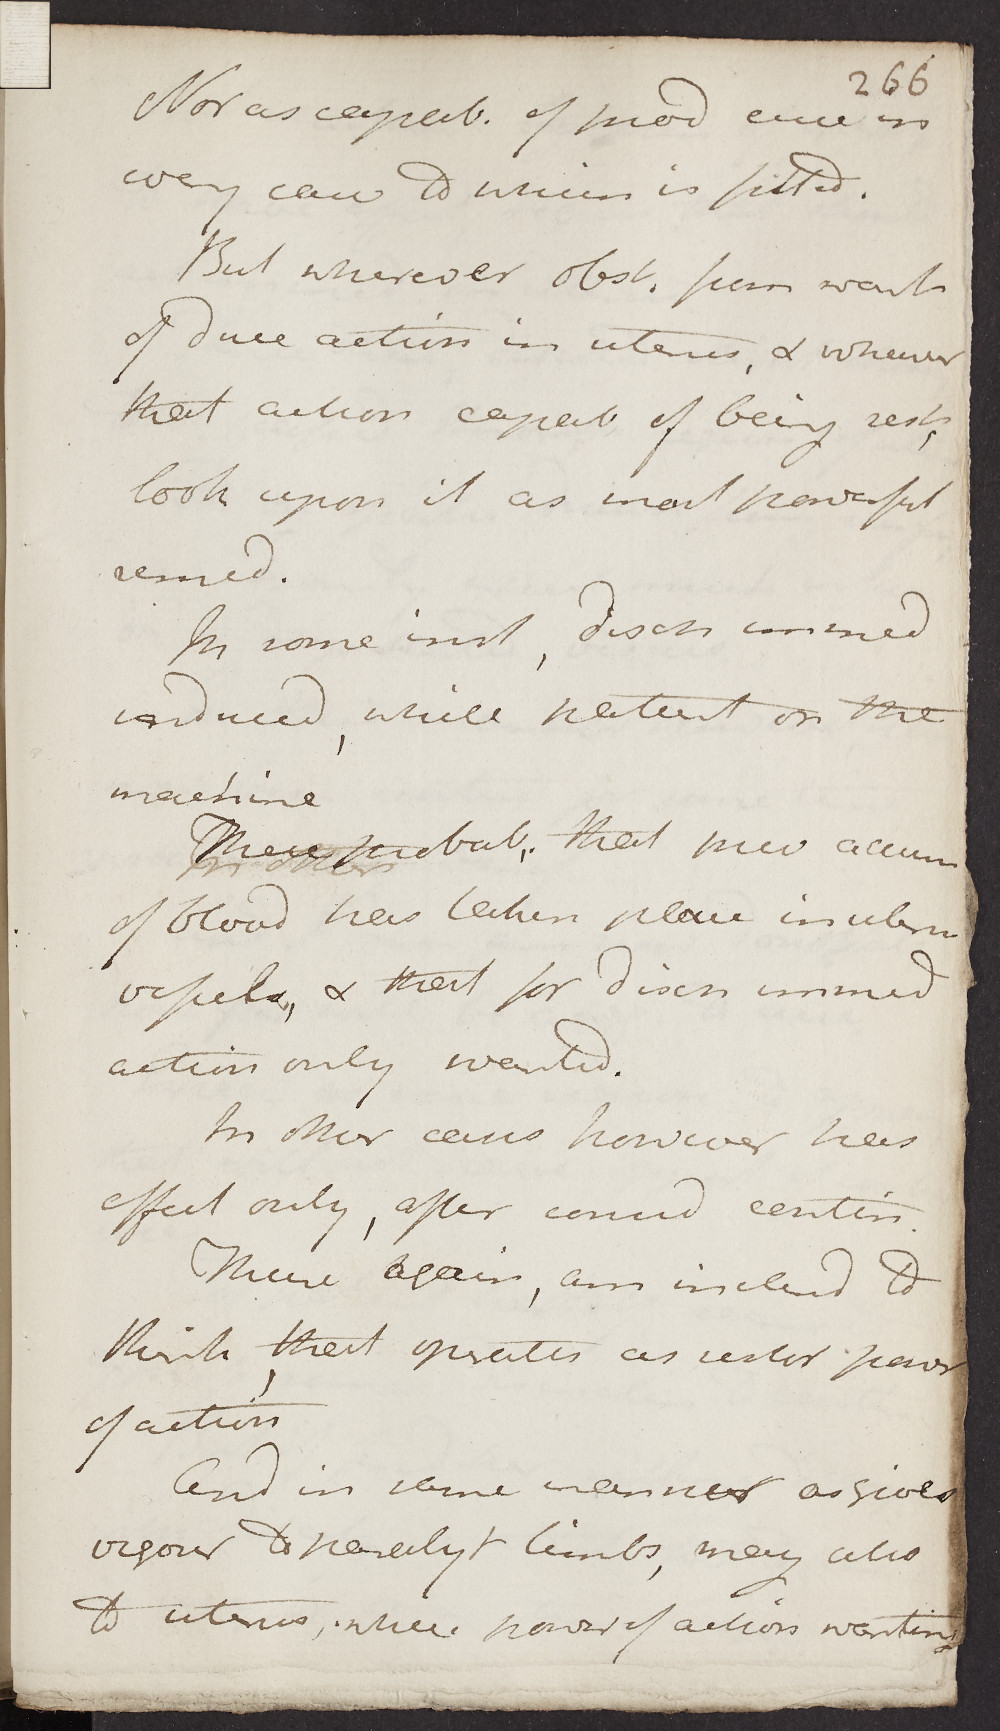 266
Nor as capab. of prod cure in
every case to which is fitted.
But wherever obst. from want
of due action in uterus, & wherever
that action capab of being rest,
look upon it as most powerful
remed.
In some inst, disch immed
induced, while patient on the
machine
There probab. that prev accum
of blood has taken place in uterin
vessels, & that for disch immed
action only wanted.
In other cases however has
effect only, after consid contin.
There again, am inclind to
think, that operates as restor power
of action
And in same manner as gives
vigour to paralyt limbs, may also
to uterus, where power of action wanting